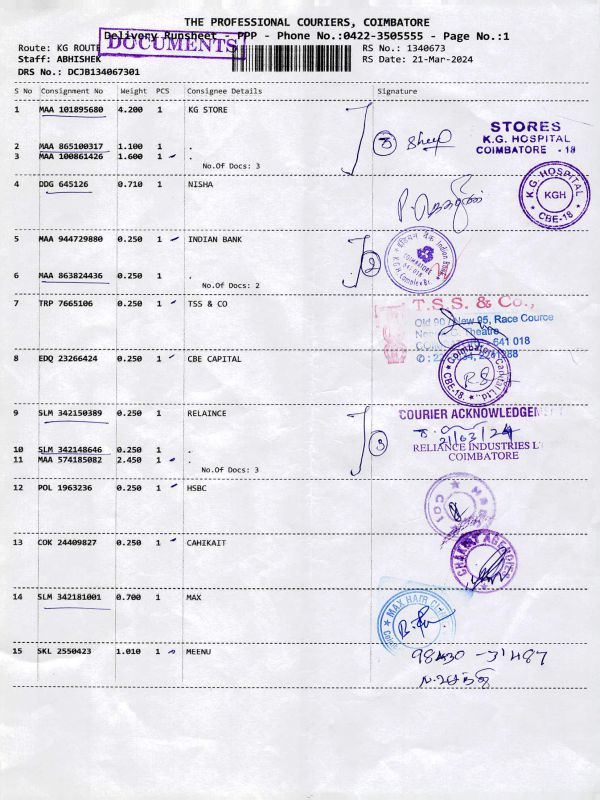 THE PROFESSIONAL COURIERS, COIMBATORE
Delivery Runsheet - PPP - Phone No.:0422-3505555 - Page No.:1
DOCUMENTS
Route: KG ROUTE
RS No.: 1340673
Staff: ABHISHEK
RS Date: 21-Mar-2024
DRS No.: DCJB134067301
S No Consignment No Weight PCS Consignee Details Signature
1 MAA 101895680 4.200 1 KG STORE
2 MAA 865100317 1.100 1 .
3 MAA 100861426 1.600 1 .
No.Of Docs: 3
3
STORES
K.G. HOSPITAL
COIMBATORE - 18
4 DDG 645126 0.710 1 NISHA
K.G. HOSPITAL
KGH
CBE-18
5 MAA 944729880 0.250 1 INDIAN BANK
6 MAA 863824436 0.250 1 .
No.Of Docs: 2
2
Indian Bank
COIMBATORE
641 018
K G H Complex Br.
7 TRP 7665106 0.250 1 TSS & CO
T.S.S. & Co.,
Old 90 / New 95, Race Cource
Theatre
641 018
8 EDQ 23266424 0.250 1 CBE CAPITAL
Coimbatore Capital Ltd.,
CBE-18.
9 SLM 342150389 0.250 1 RELAINCE
10 SLM 342148646 0.250 1 .
11 MAA 574185082 2.450 1 .
No.Of Docs: 3
3
COURIER ACKNOWLEDGEMENT
21/03/24
RELIANCE INDUSTRIES LT
COIMBATORE
12 POL 1963236 0.250 1 HSBC
13 COK 24409827 0.250 1 CAHIKAIT
AGENCIES
14 SLM 342181001 0.700 1 MAX
MAX HAIR
15 SKL 2550423 1.010 1 MEENU
98430 - 31487